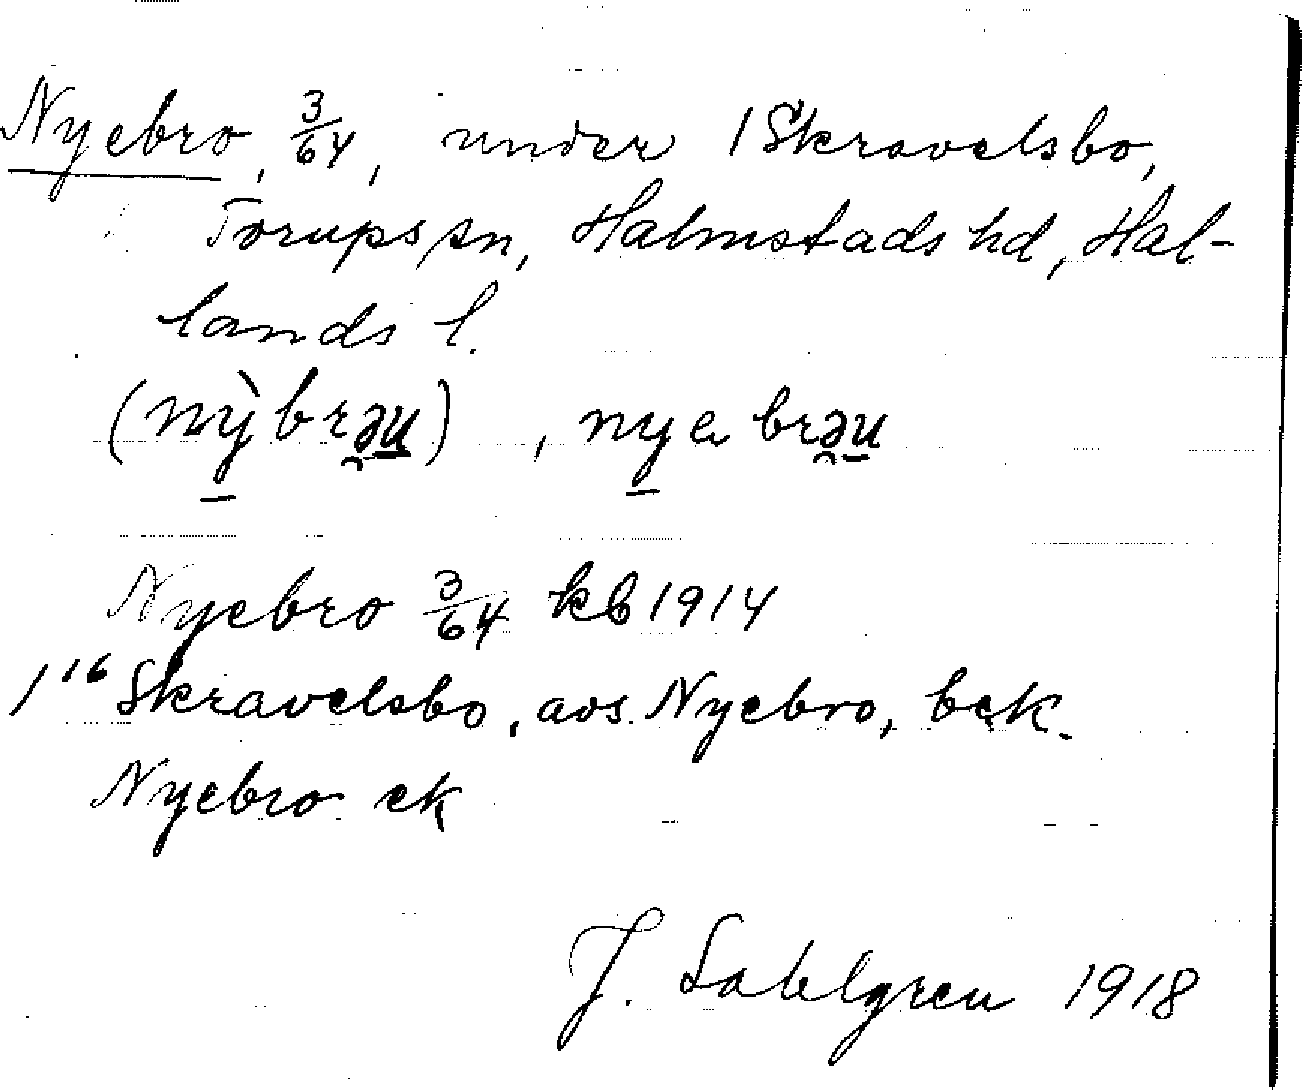 Nyebro, 3/64, under 1 Skravelsbo,
Torups sn, Halmstads hd, Hal-
lands l.
(nỳbrəu), nyabrəu
Nyebro 3/64 kb 1914
1¹⁶ Skravelsbo, avs. Nyebro, bek.
Nyebro ek
J. Sahlgren 1918